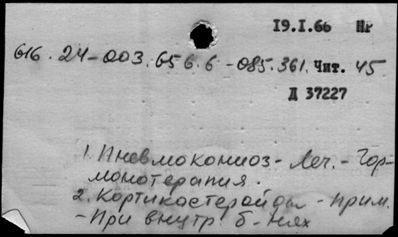 19.I.66 НР
616.24-003.656.6-085.361. Чит. 45
Д 37227
1. Пневмокониоз - Леч. - Гор-
монотерапия.
2. Кортикостеройды - прим.
- При внутр. б-нях